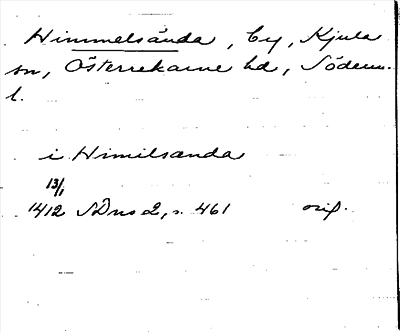 Himmelsända, by, Kjula
sn, Österrekarne hd, Söderm.
l.
i Himilsanda
13/1
1412 SDns 2, s. 461 orig.